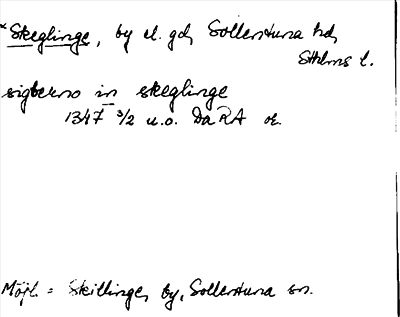 *Skeglinge, by el. gd, Sollentuna hd,
Sthlms l.
sigberno in skeglinge
1347 3/2 u.o. Da RA or.
Möjl. = Skillinge, by, Sollentuna sn.